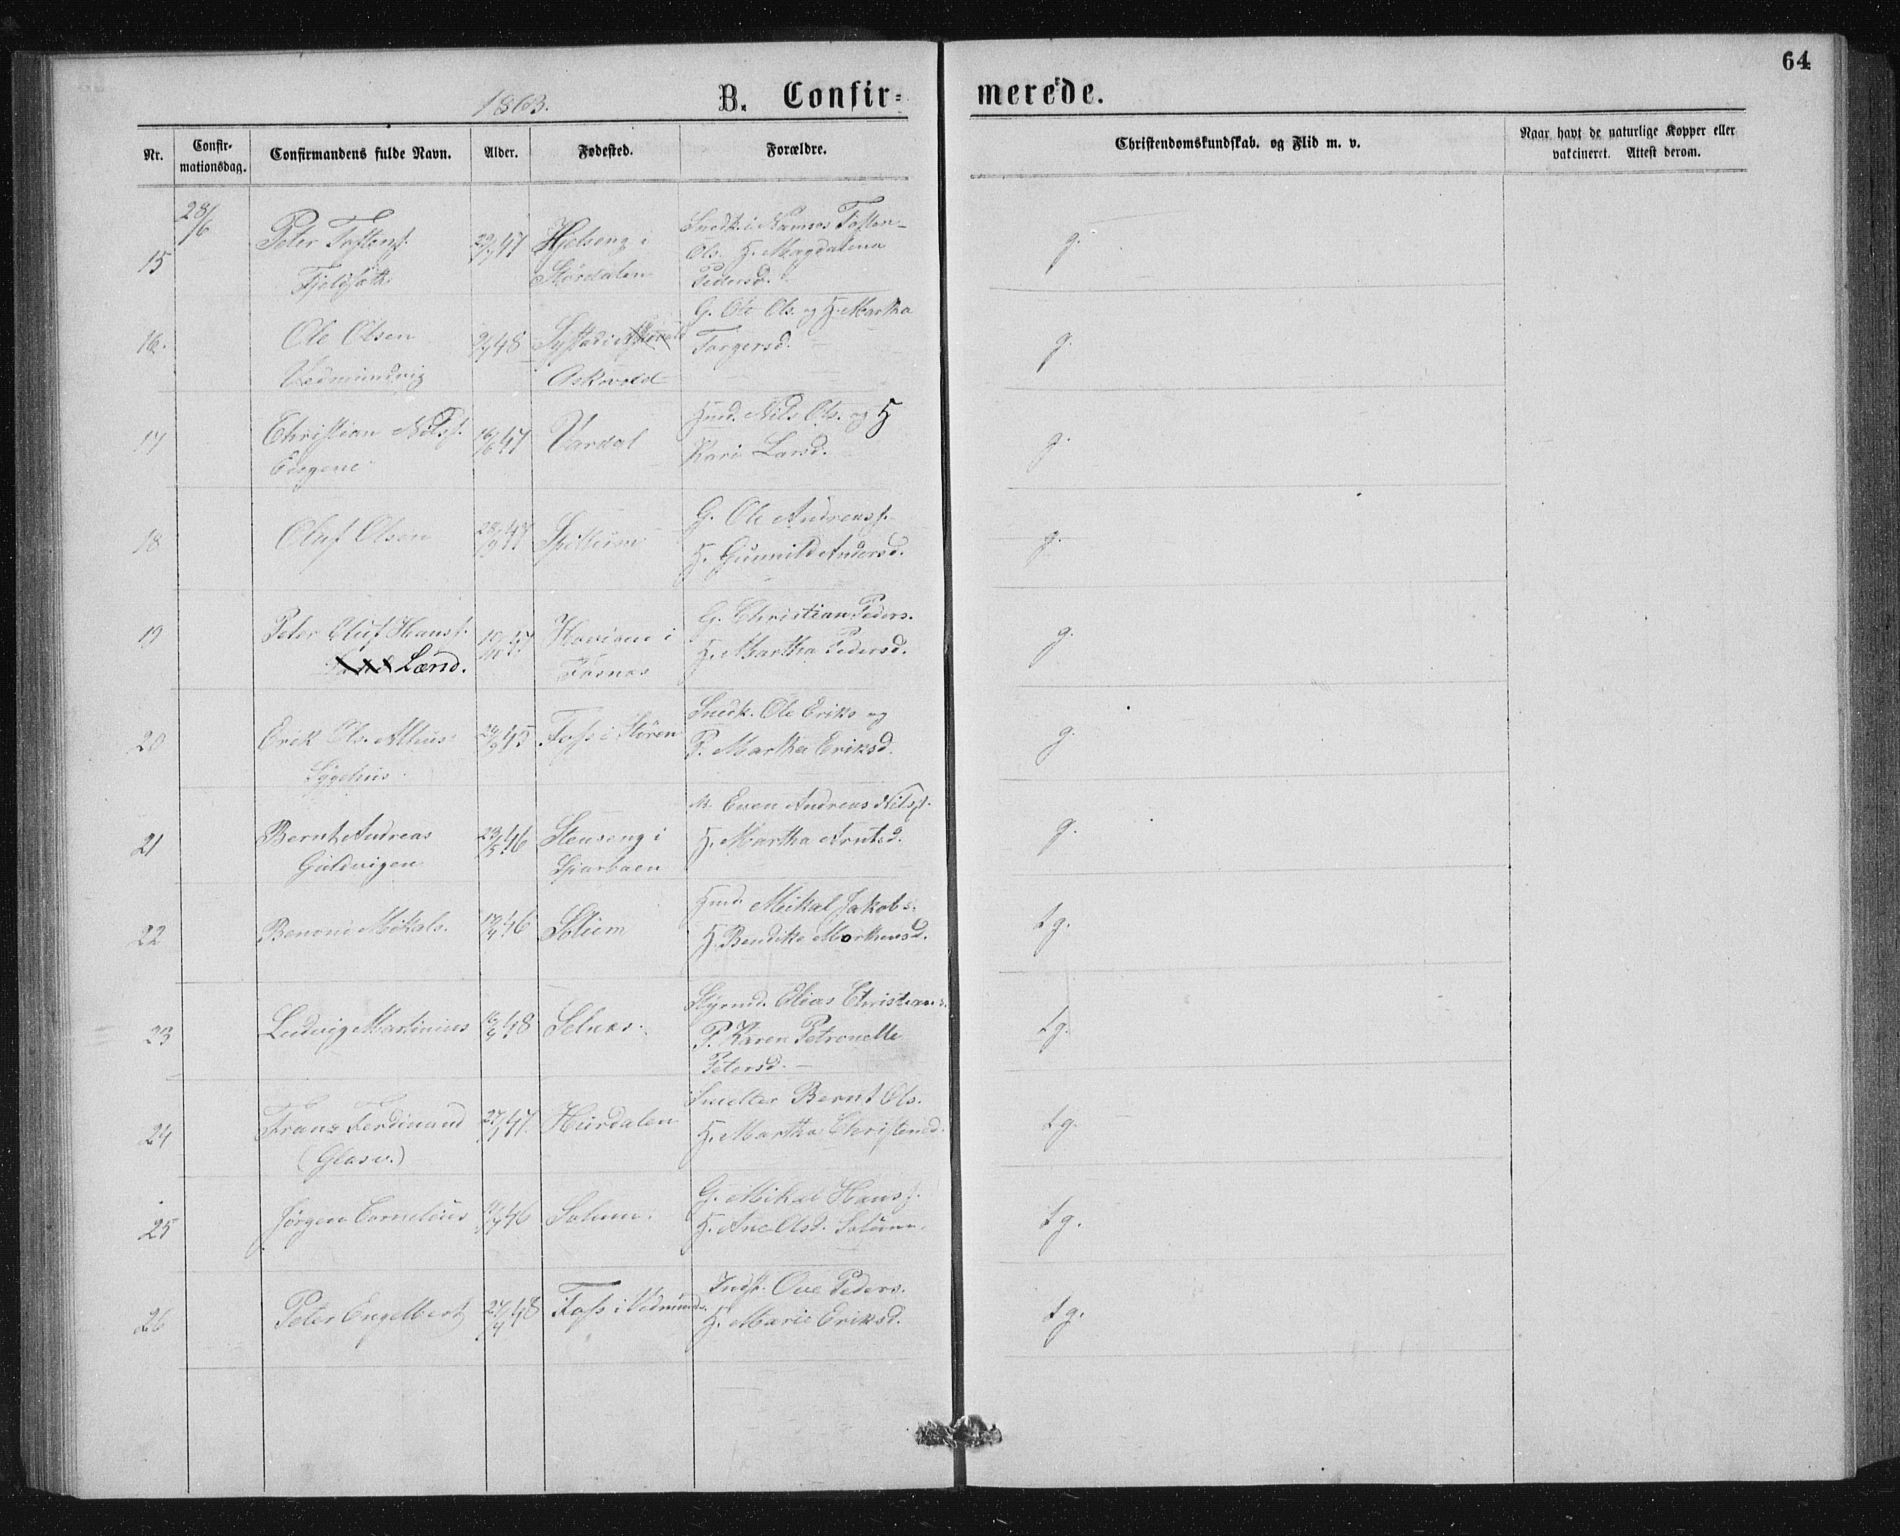 64
1863.
B. Confir=
merede.
Nr.
Confir-
mationsdag.
Confirmandens fulde Navn.
Alder.
Fødested.
Forældre.
Christendomskundskab. og Flid m. v.
Naar havt de naturlige Kopper eller
vakcineret. Attest derom.
28/6
15
Peter Tostens.
47
Hjelseng i
Størdalen
Snedk. i Namsos Tosten
Ols. H. Magdalena
Pedersd.
g.
16.
Ole Olsen
Vedmundvig
2/7 48
Askvold
G. Ole Ols. og H. Martha
Torgersd.
g.
17
Christian Nilss.
16/6 47
Vardal
Hmd. Nils Ols. og H
Kari Larsd.
g.
18
Oluf Olsen
28/9 47
Spillum
G. Ole Andreass.
H. Gunnild Andersd.
g.
19
Peter Oluf Hans.
Lænd.
10/10 47
i
Fosnes
G. Christian Peders.
H. Martha Pedersd.
g.
20
Erik Ols.
Sygehus
45
Foss i Støren
Snedk. Ole Eriks og
P. Martha Eriksd.
g.
21
Bernt Andreas
Guldvigen
29/5 46
Stenseng i
Sparboen
M. Even Andreas Nilss.
H. Martha Arntsd.
g.
22
Benoni Mikals.
46
Hmd. Mikal Jakobs.
H. Bendikte Morthensd.
t g.
23
Ludvig Martinius
48
Selnes.
Styrmd. Elias Christians.
P. Karen Petronelle
Petersd.
t g.
24
Franz Ferdinand
(Glasv.)
27/1 47.
Hurdalen
Smelter Bernt Ols.
H. Martha Christensd.
t g.
25
Jørgen Cornelius
46
Solum.
G. Mikal Hanss.
H. Ane Olsd. Solum.
t g.
26
Peter Engelbert
27/4 48
Foss i Vedmund.
Inds. Ove Peders.
H. Marie Eriksd.
t g.